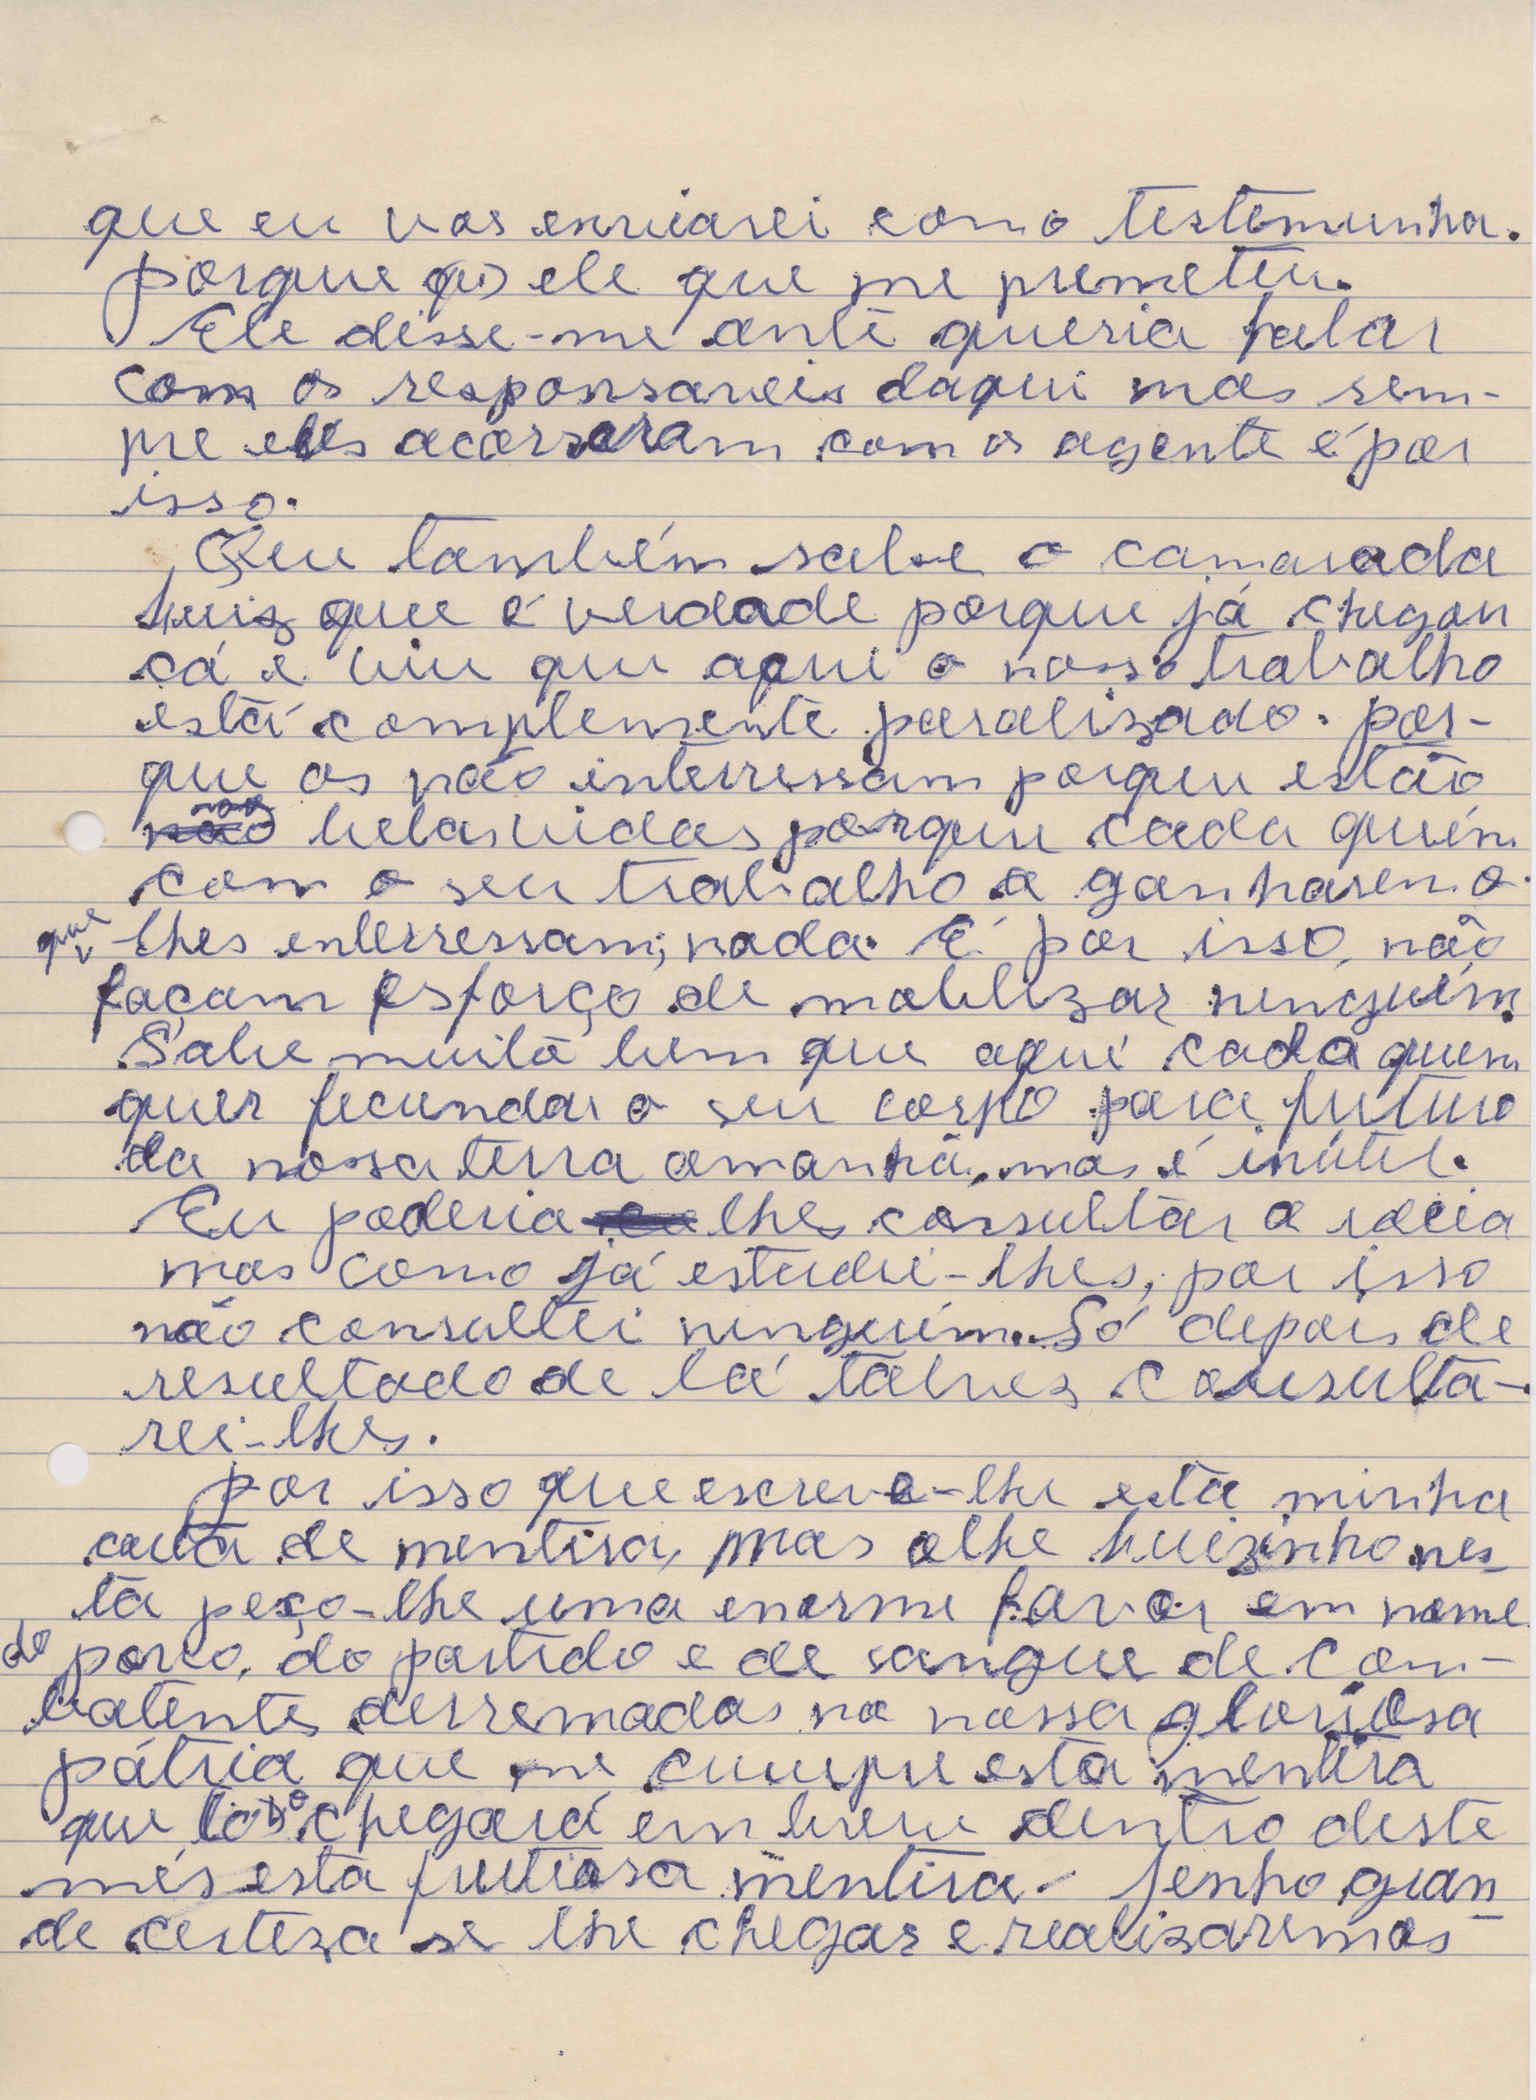 que eu vos enviarei como testemunha.
porque foi ele que me premeteu.
Ele disse-me ante queria falar
com os responsaveis daqui mas sem-
pre eles acorseram com os agente é por
isso.
Que também sabe o camarada
Luiz que é verdade porque já chegou
cá e viu que aqui o nosso trabalho
está complemente paralizado. por-
que os não interressam porque estão
nas belas vidas porque cada quém
com o seu trabalho a ganharem o
que lhes enterressam; nada. É por isso, não
façam esforço de mobilizar ninguém.
Sabe muito bem que aqui cada quem
quer fecundar o seu corpo para futuro
da nossa terra amanhã, mas é inútil.
Eu poderia lhes consultar a idéia
mas como já estudei-lhes, por isso
não consultei ninguém. Só depois de
resultado de lá talvez consulta-
rei-lhes.
Por isso que escrevo-lhe esta minha
carta de mentira, mas olhe Luizinho nes-
ta peço-lhe uma enorme favor em nome
do povo, do partido e de sangue de com-
batentes derremadas na nossa gloriosa
pátria que me cumpre esta mentira
que chegará em breve dentro deste
mês esta frutuosa mentira. Tenho gran
de certeza se lhe chegar e realizaremos